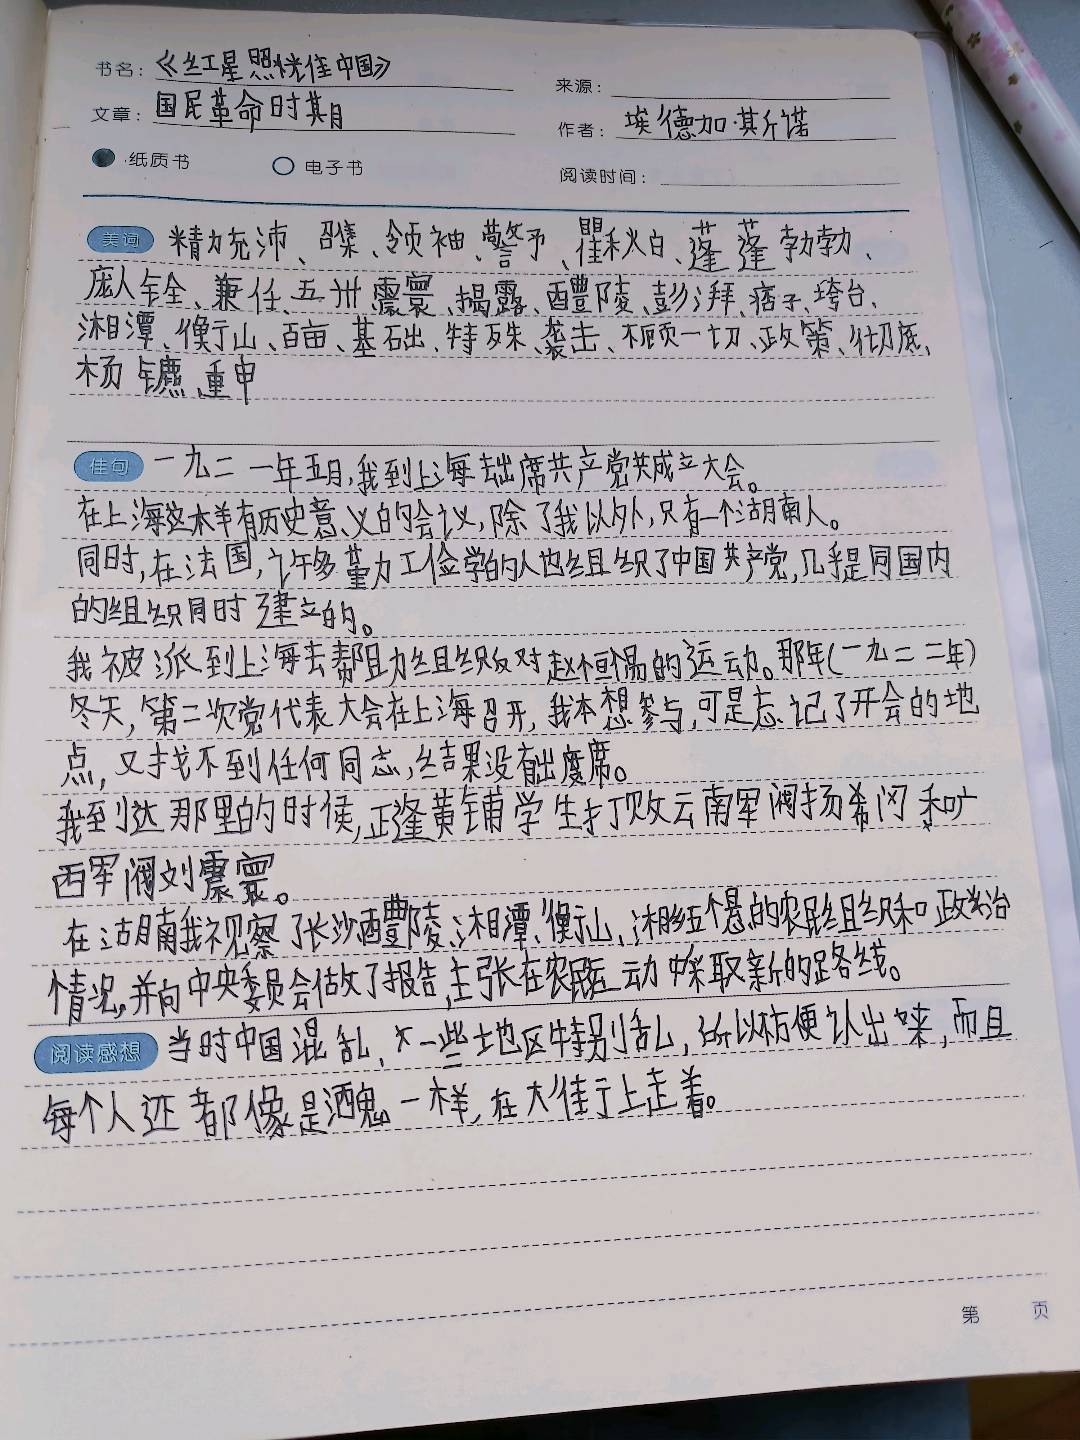 书名：《红星照耀中国》
来源：
文章：国民革命时期
作者：埃德加·斯诺
纸质书 电子书
阅读时间：
美词 精力充沛、召集、领袖、警予、瞿秋白、蓬蓬勃勃、
庞人铨、兼任、五卅、震寰、揭露、醴陵、彭湃、痞子、垮台、
湘潭、衡山、百亩、基础、特殊、袭击、不顾一切、政策、彻底、
杨镳、重申
佳句 一九二一年五月，我到上海去出席共产党共成立大会。
在上海这本半有历史意义的会议，除了我以外，只有一个湖南人。
同时，在法国，许多勤力工俭学的人也组织了中国共产党，几乎是同国内
的组织同时建立的。
我被派到上海去帮助组织反对赵恒惕的运动。那年（一九二二年）
冬天，第二次党代表大会在上海召开，我本想参与，可是忘记了开会的地
点，又找不到任何同志，结果没有出度席。
我到达那里的时候，正逢黄铺学生打败云南军阀扬希闵和旷
西军阀刘震寰。
在湖南我视察了长沙、醴陵、湘潭、衡山、湘乡五个县的农民组织和政治
情况，并向中央委员会做了报告，主张在农民运动中采取新的路线。
阅读感想 当时中国混乱，大一些地区特别乱，所以枋便认出来，而且
每个人还都像是酒鬼一样，在大街上走着。
第 页